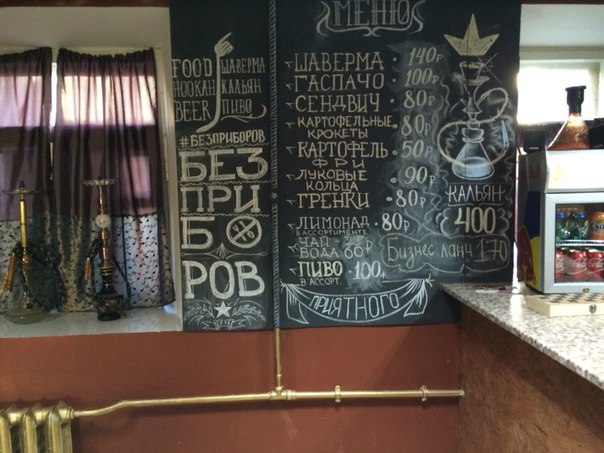 FOOD ШАВЕРМА
HOOKAH КАЛЬЯН
BEER ПИВО
#БЕЗПРИБОРОВ
БЕЗ
ПРИ
БО
РОВ
МЕНЮ
ШАВЕРМА · 140р
ГАСПАЧО · 100р
СЕНДВИЧ · 80р
КАРТОФЕЛЬНЫЕ
КРОКЕТЫ · 80р
КАРТОФЕЛЬ · 50р
ФРИ
ЛУКОВЫЕ
КОЛЬЦА · 90р
ГРЕНКИ · 80р
ЛИМОНАД · 80р
В АССОРТИМЕНТЕ
ЧАЙ
ВОДА 60р
ПИВО · 100р
В АССОРТ.
ПРИЯТНОГО
КАЛЬЯН
400
Бизнес ланч 170